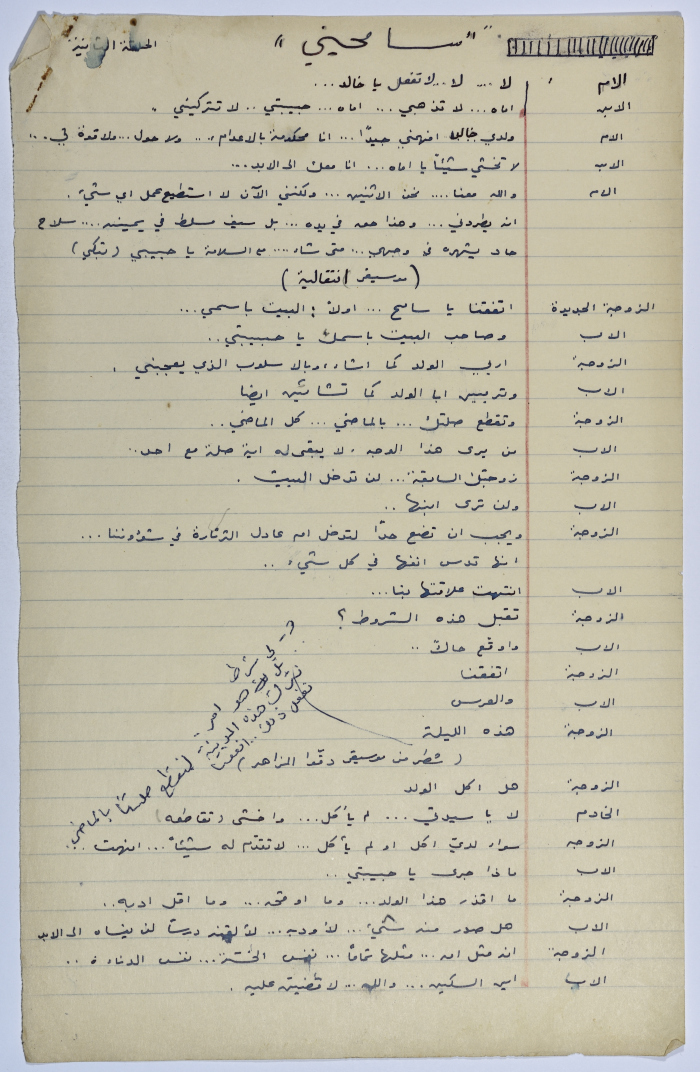 الحلقة الثانية
"سامحيني"
الام لا ... لا .. لا تفعل يا خالد ...
الابن اماه ... لا تذهبي ... اماه ... حبيبتي .. لا تتركيني .
الام ولدي خالد افهمني جيدًا ... انا محكومة بالاعدام ... ولا حول .. ولا قوة لي ...
الابن لا تخشي شيئاً يا اماه ... انا معك الى الابد ...
الام والله معنا .... نحن الاثنين ... ولكنني الآن لا استطيع عمل اي شيء .
انه يطردني ... وهذا حقه في يده ... بل سيف مسلط في يمينه .... سلاح
حاد يشهره في وجهي .. متى شاء .... مع السلامة يا حبيبي (تبكي)
(موسيقى انتقالية)
الزوجة الجديدة اتفقنا يا سامح ... اولاً : البيت باسمي ...
الاب وصاحب البيت باسمك يا حبيبتي ..
الزوجة اربي الولد كما اشاء ، وبالاسلوب الذي يعجبني .
الاب وتربين ابا الولد كما تشائين ايضا
الزوجة وتقطع صلتك ... بالماضي ... كل الماضي ..
الاب من يرى هذا الوجه ، لا يبقى له اية صلة مع احد ..
الزوجة زوجتك السابقة ... لن تدخل البيت .
الاب ولن ترى ابنها ..
الزوجة ويجب ان تضع حدًا لتدخل ام عادل الثرثارة في شؤوننا ...
انها تدس انفها في كل شيء ..
الاب انتهت علاقتها بنا ...
الزوجة تقبل هذه الشروط ؟
الاب واوقع حالاً ..
الزوجة اتفقنا
الاب والعرس
الزوجة هذه الليلة
و - لي شرط
امر
نترك هذه المدينة لنقطع صلتنا بالماضي
تفعل ذلك .. اتفقنا
(شطر من موسيقى دقوا المزاهر)
الزوجة هل اكل الولد
الخادم لا يا سيدتي ... لم يأكل ... واخشى (تقاطعه)
الزوجه سواء لديّ اكل او لم يأكل ... لا تقدّم له شيئاً ... انتهت ..
الاب ماذا جرى يا حبيبتي ..
الزوجة ما اقذر هذا الولد ... وما اوقحه ... وما اقل ادبه ..
الاب هل صدر منه شيء ... لأودبه ... لألقنه درساً لن ينساه الى الابد
الزوجة انه مثل امه ... مثلها تماماً ... نفس الخسّة ... نفس الدناءة ..
الاب اين السكين ... والله ... لأقضينّ عليه .